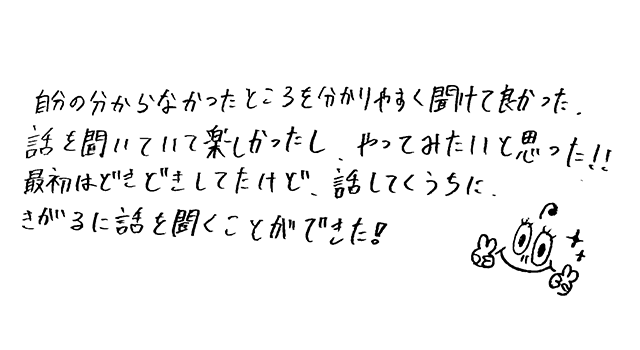 自分の分からなかったところを分かりやすく聞けて良かった.
話を聞いていて楽しかったし、やってみたいと思った!!
最初はどきどきしてたけど、話してくうちに、
きがるに話を聞くことができた!